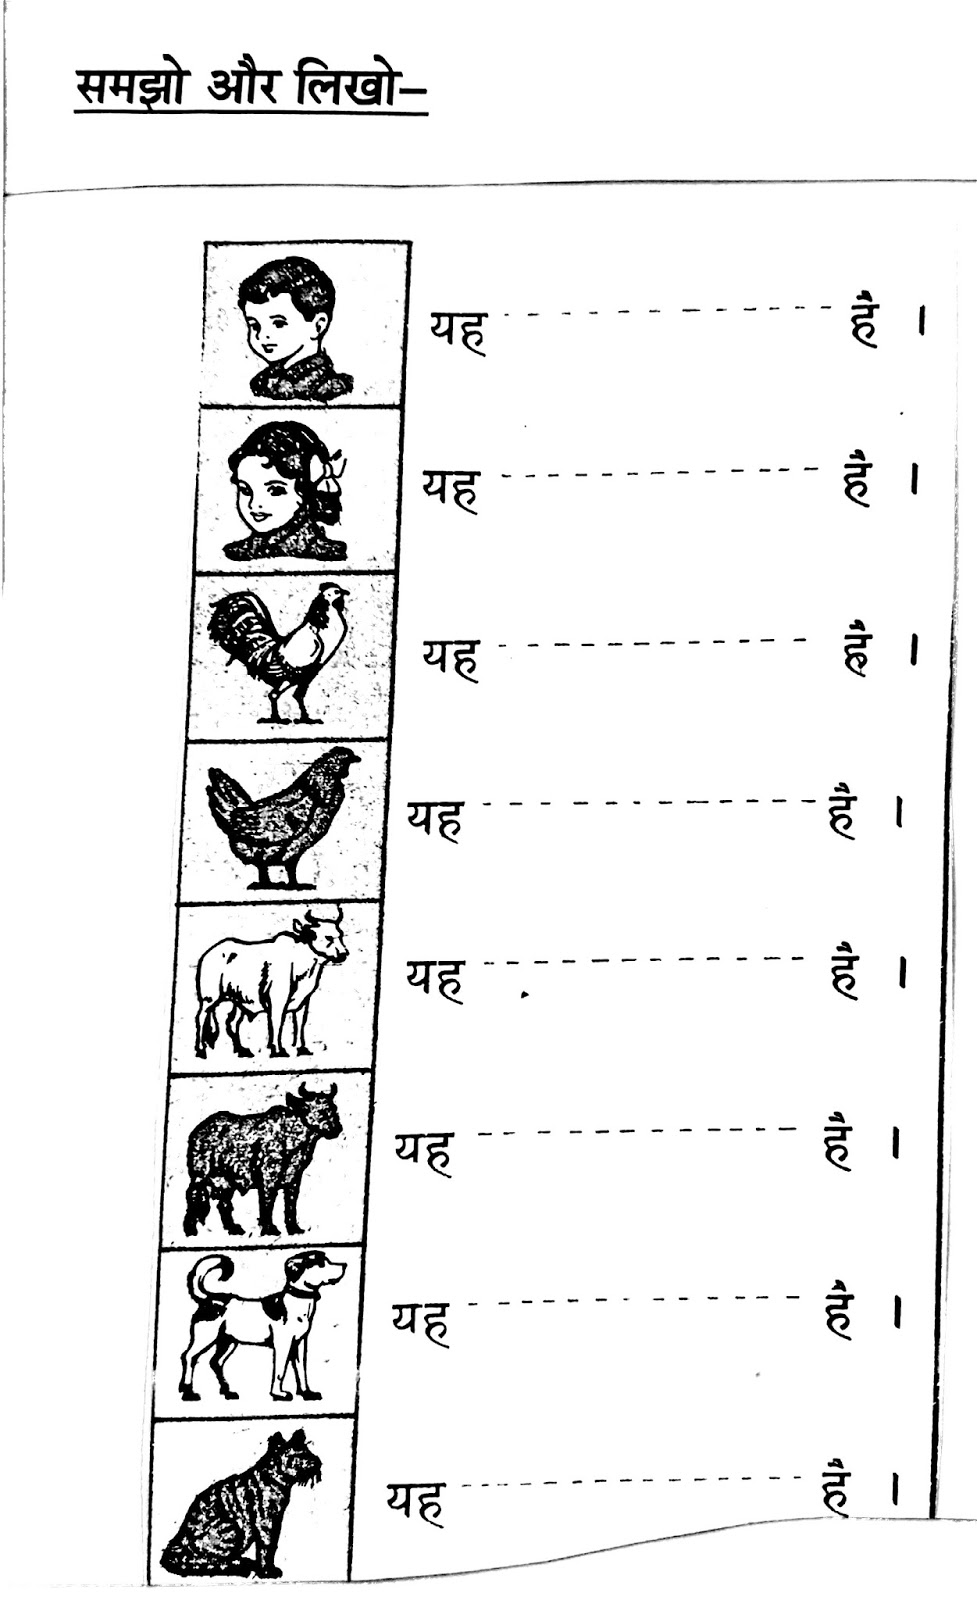 समझो और लिखो–
यह ------------ है ।
यह ------------ है ।
यह ------------ है ।
यह ------------ है ।
यह ------------ है ।
यह ------------ है ।
यह ------------ है ।
यह ------------ है ।